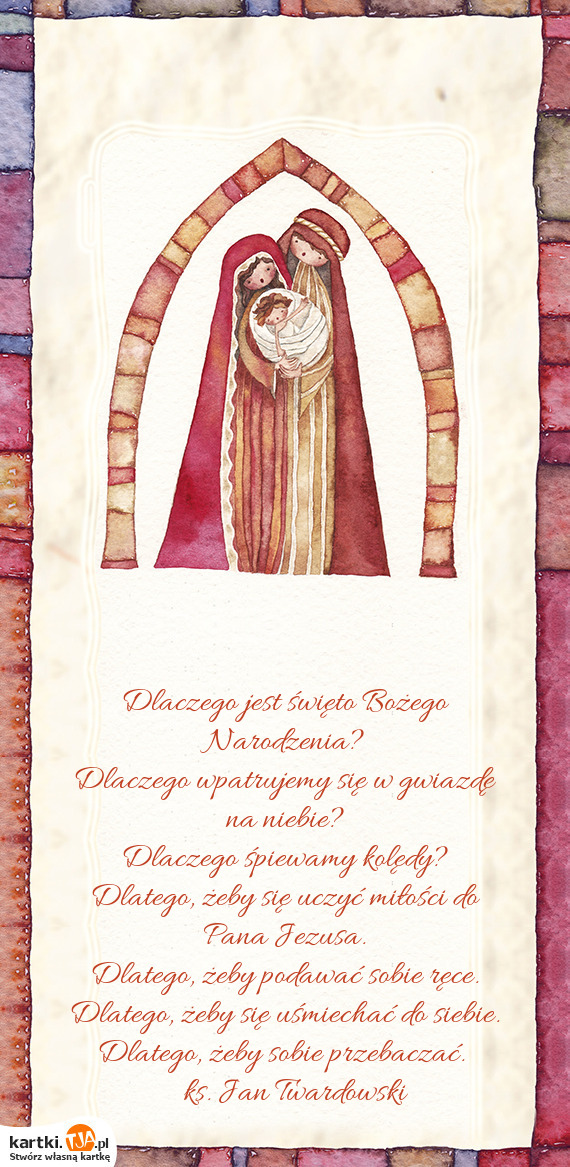 Dlaczego jest święto Bożego
Narodzenia?
Dlaczego wpatrujemy się w gwiazdę
na niebie?
Dlaczego śpiewamy kolędy?
Dlatego, żeby się uczyć miłości do
Pana Jezusa.
Dlatego, żeby podawać sobie ręce.
Dlatego, żeby się uśmiechać do siebie.
Dlatego, żeby sobie przebaczać.
ks. Jan Twardowski
kartki.TJA.pl
Stwórz własną kartkę